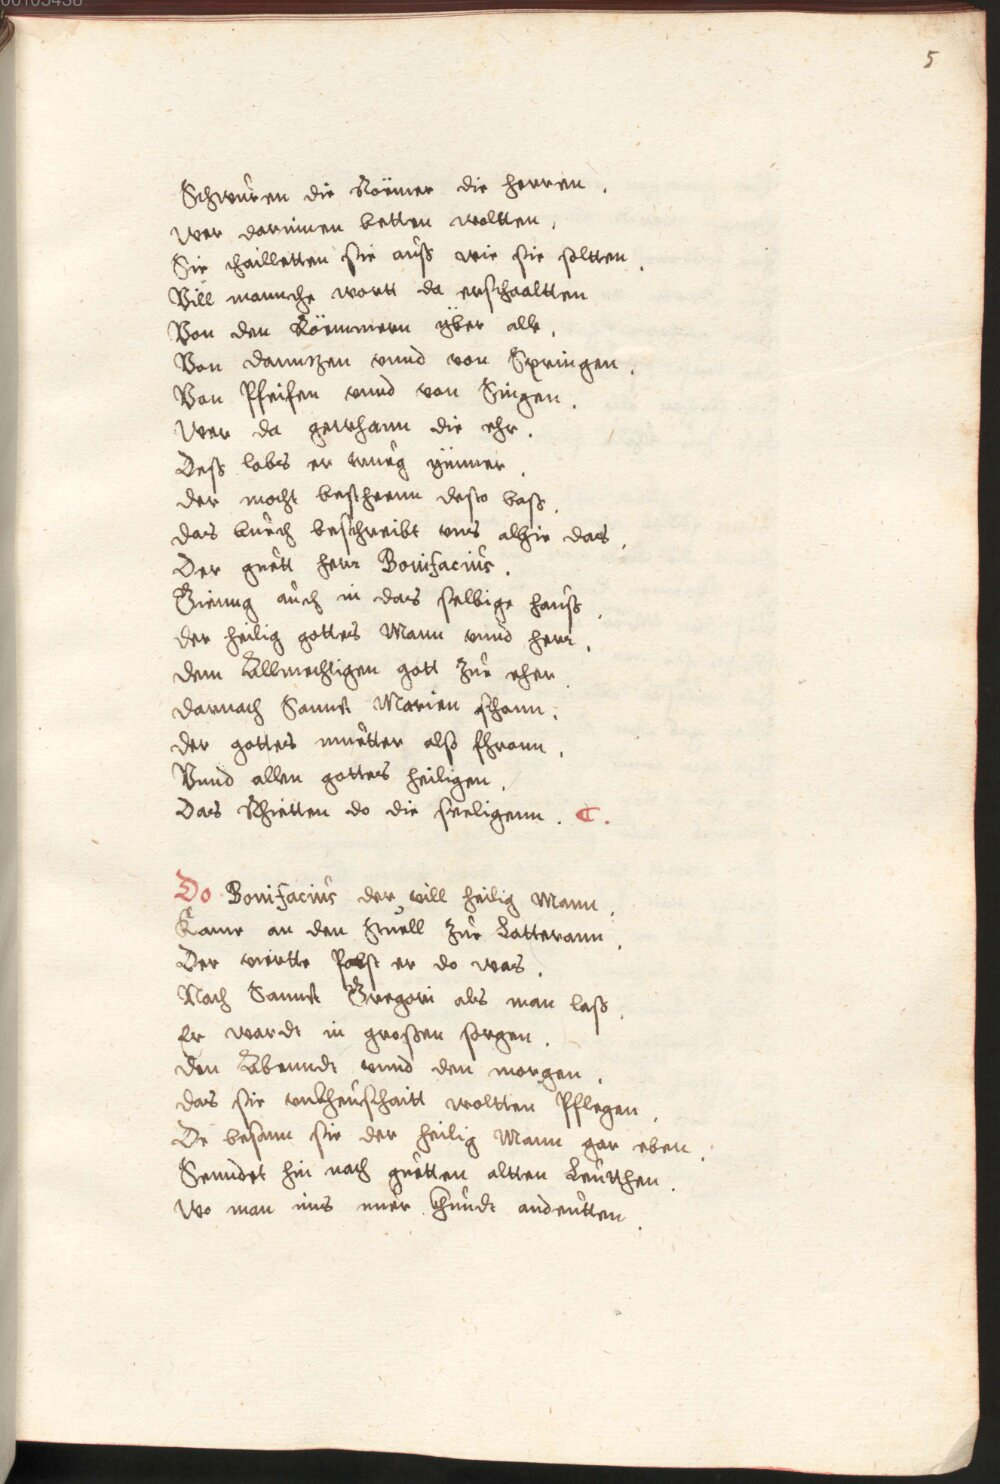 00105438
5
Schwuren die Römer die herren .
Wer darinnen betten woltten .
Sie thailletten sie auß wie sie soltten .
Vill mannche wortt da erschaaltten
Von den Röemmern yber alle .
Von danntzen vnnd von Springen .
Von Pfeifen vnnd von Singen .
Wer da gewhann die ehr .
Deß lobs er ymmer .
der mocht bestheenn desto baß .
das buech beschreibt vns alhie das .
Der guett herr Bonifacius .
Gienng auch in das selbige hauß .
der heilig gottes Mann vnnd herr .
dem Allmechtigen gott zur eher .
darnach Sannct Marien schonn .
der gottes muetter alß fhronn .
Vnnd allen gottes heiligen .
Das Rhietten do die seeligenn . C .
Do Bonifacius der vill heilig Mann .
Kame an den Stuell zue Latterann .
Der viertte Pabst er do was .
Nach Sannct Gregori als man laß .
Er wardt in großen sorgen .
den Abenndt vnnd den morgen .
das sie vnkheuschaitt woltten Pflegen .
De besann sie der heilig Mann gar eben .
Senndet hin nach guetten altten Leutthen .
Wo man ims nuer khundt andeutten .